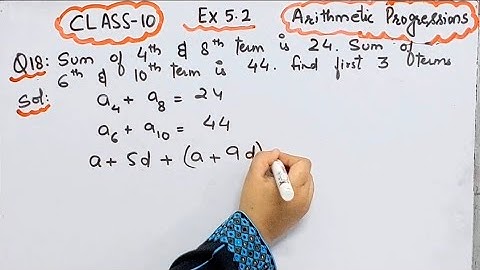 CLASS-10 Ex 5.2 Arithmetic Progressions
Q18: Sum of 4th & 8th term is 24. Sum of
6th & 10th term is 44. find first 3 terms
Sol:
a4 + a8 = 24
a6 + a10 = 44
a + 5d + (a + 9d)